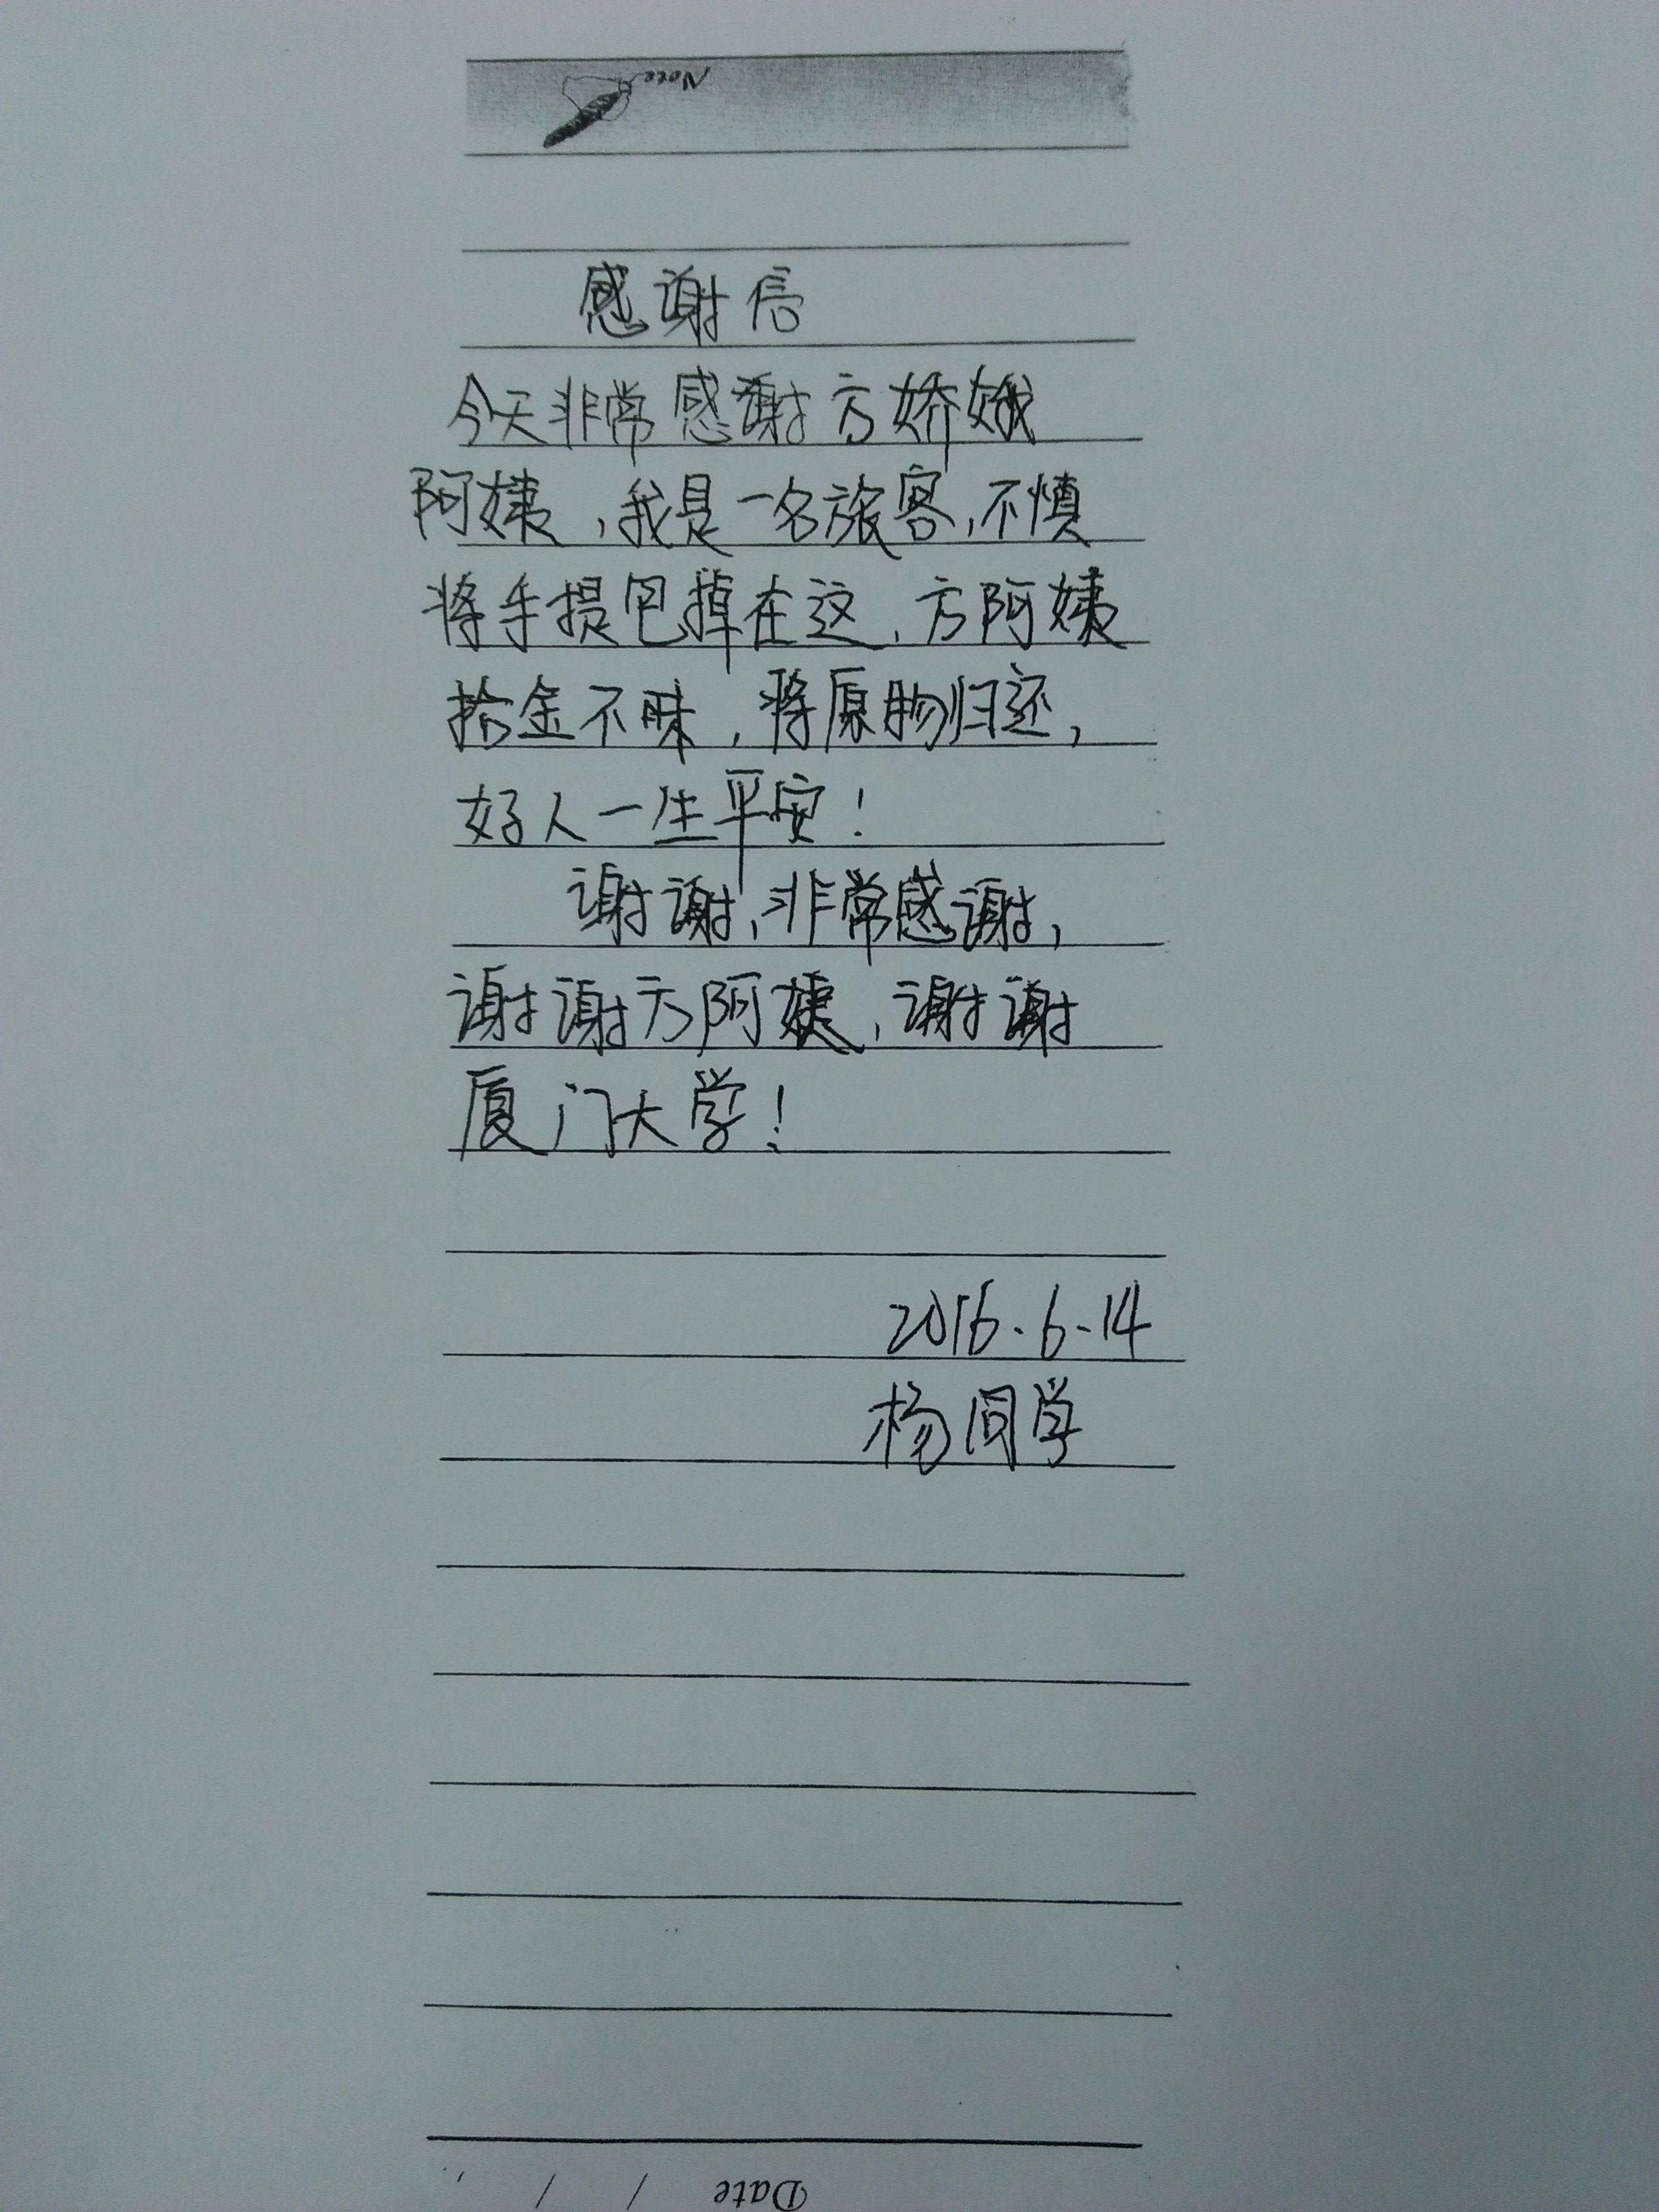 Note
感谢信
今天非常感谢方娇娥
阿姨，我是一名旅客，不慎
将手提包掉在这，方阿姨
拾金不昧，将原物归还，
好人一生平安！
谢谢，非常感谢，
谢谢方阿姨，谢谢
厦门大学！
2016.6.14
杨同学
Date / /